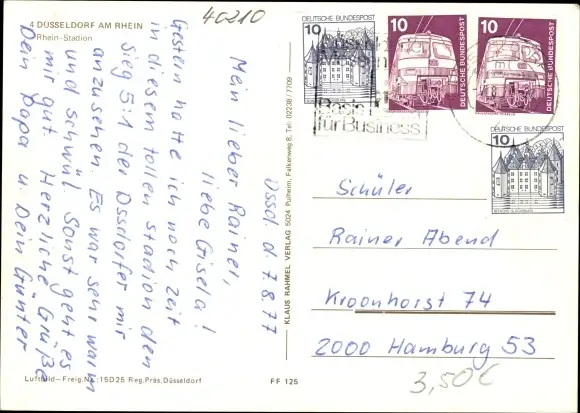 40210
4 DÜSSELDORF AM RHEIN
Rhein-Stadion
Düssd. d. 7.8.77
Mein lieber Rainer,
liebe Gisela!
Gestern hatte ich noch Zeit
in diesem tollen Stadion den
Sieg 5:1 der Dssdorfer mir
anzusehen. Es war sehr warm
und schwül. Sonst geht es
mir gut. Herzliche Grüße
Dein Papa u. Dein Günter
Luftbild-Freig.Nr.: 15D25 Reg.Präs.Düsseldorf
FF 125
KLAUS RAHMEL VERLAG 5024 Pulheim, Falkenweg 6, Tel. 02238/7709
DEUTSCHE BUNDESPOST
10
10
DEUTSCHE BUNDESPOST
10
DEUTSCHE BUNDESPOST
DEUTSCHE BUNDESPOST
10
Basis
für Business
Schüler
Rainer Abend
Kroonhorst 74
2000 Hamburg 53
3,50€